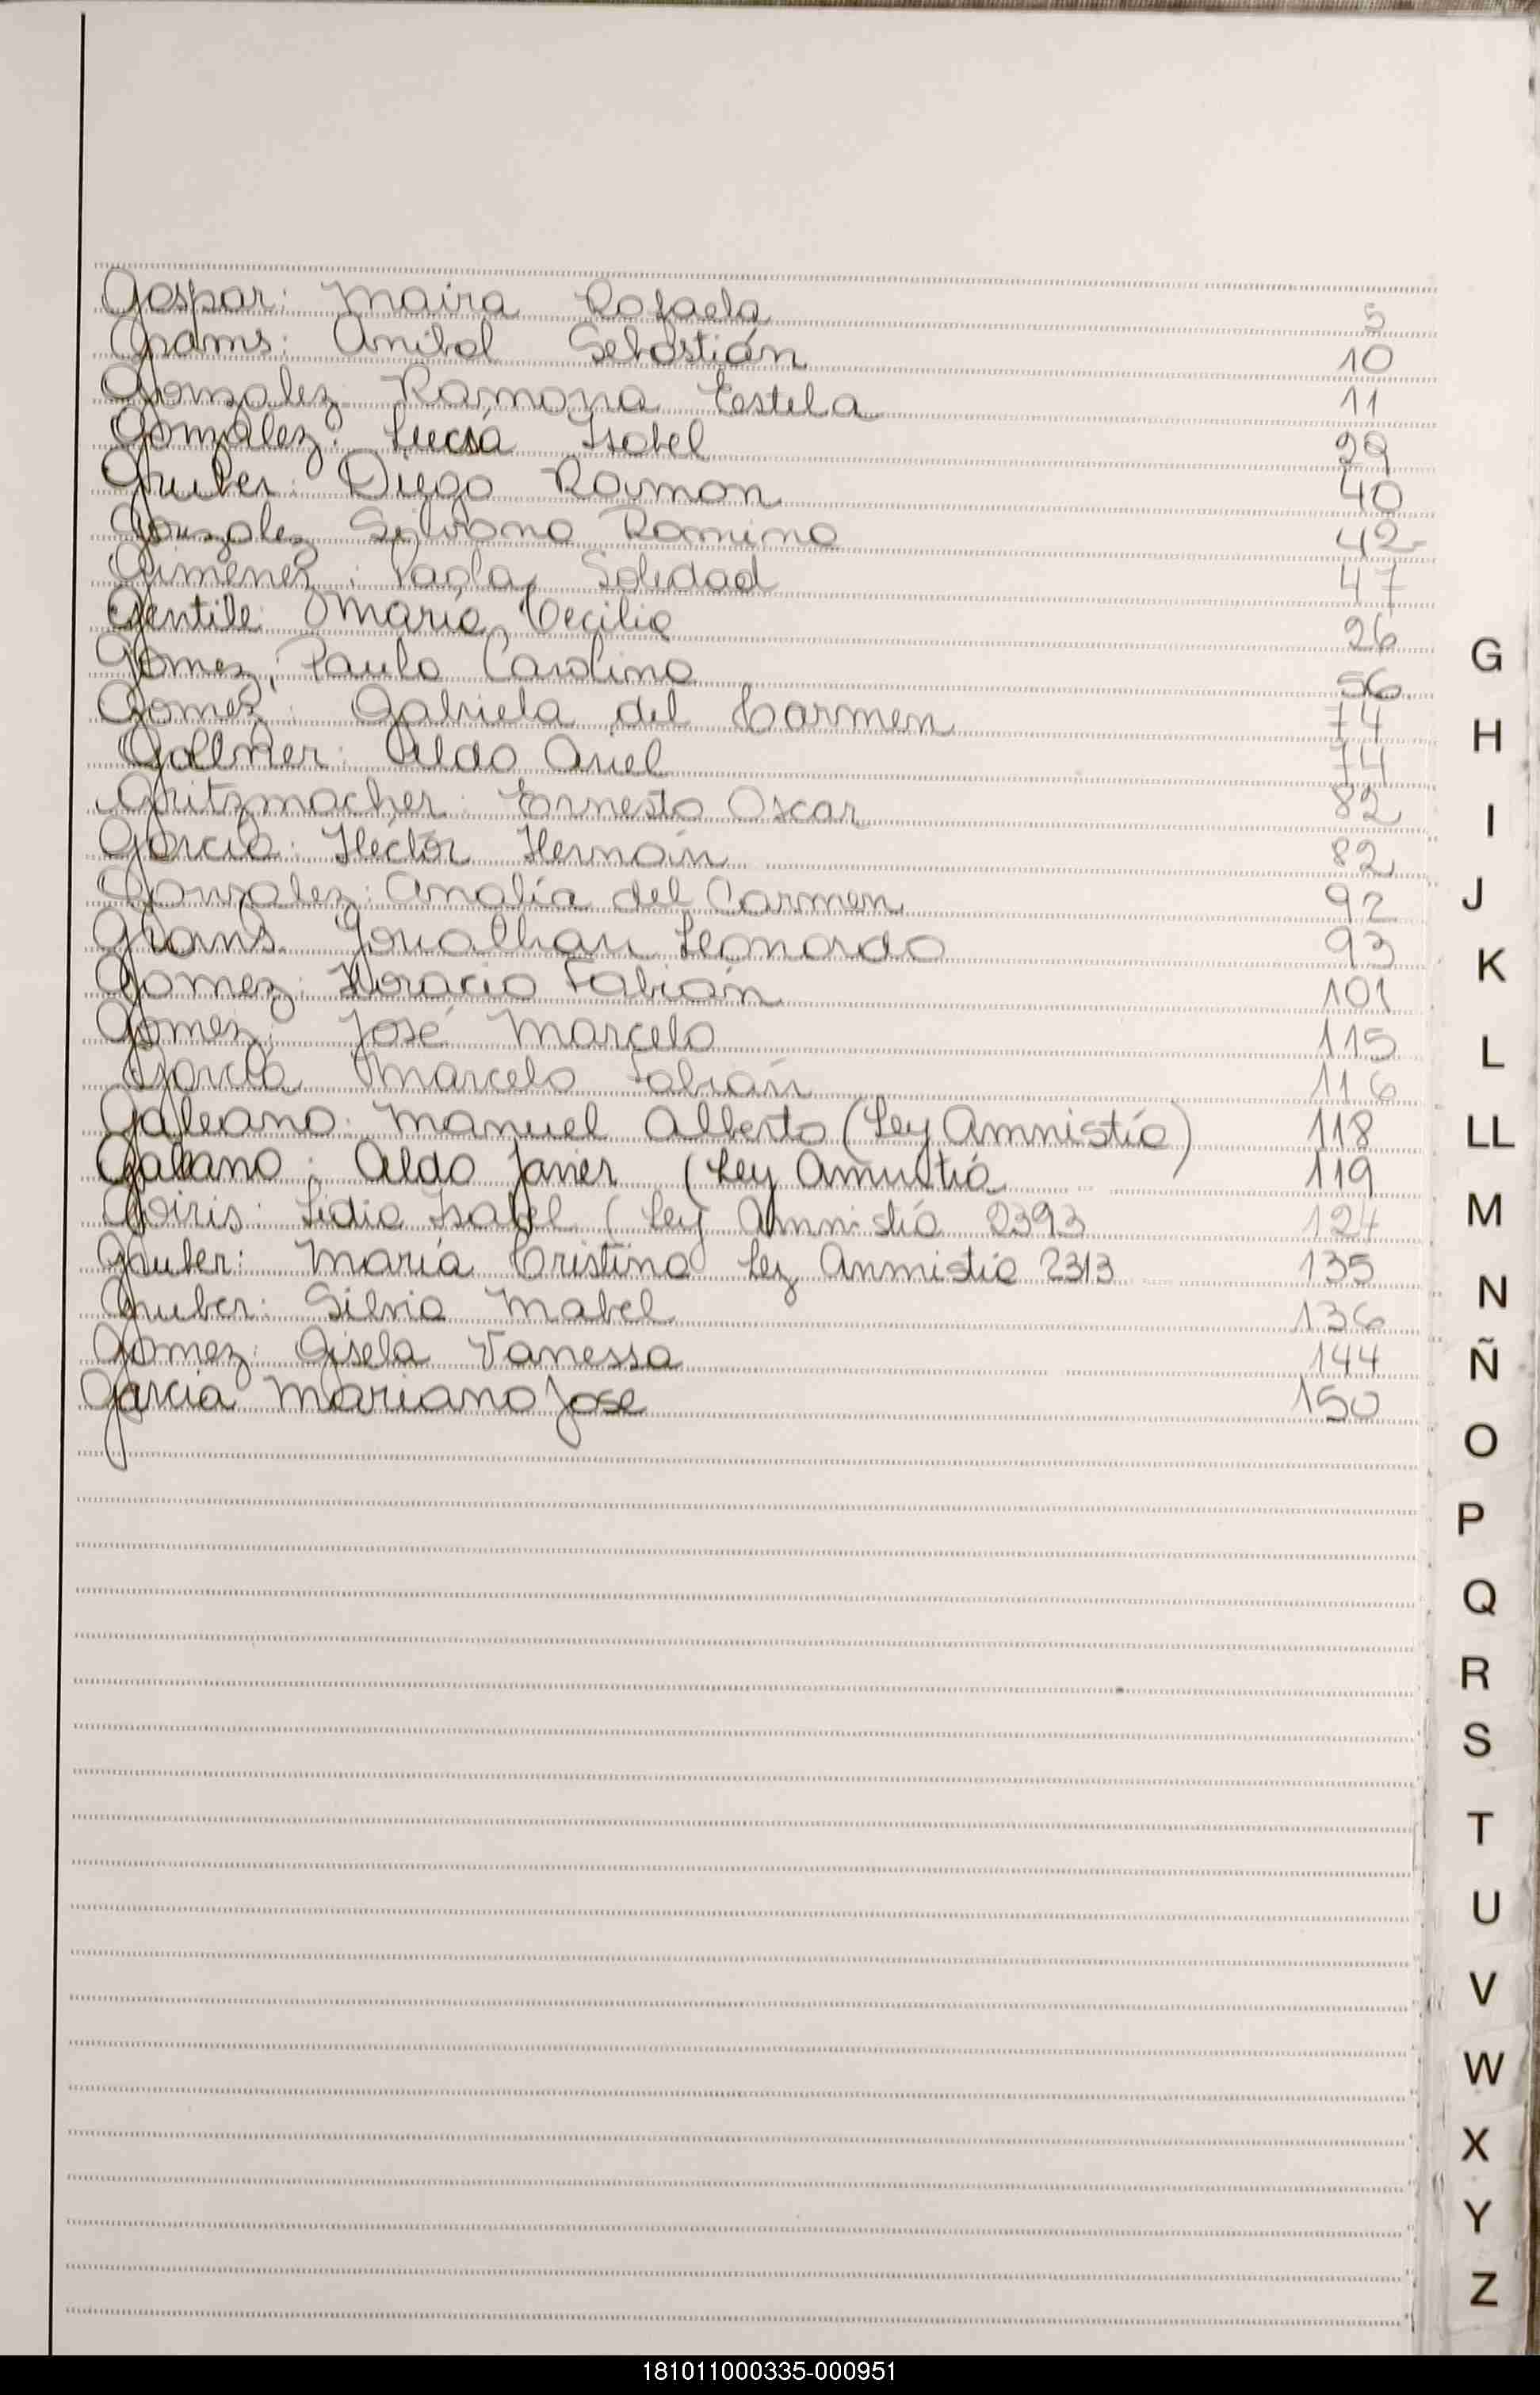 Gaspar: Maira Rafaela 5
Grams: Anibal Sebastián 10
Gonzalez Ramona Estela 11
González: Lucía Isabel 29
Gruber: Diego Ramon 40
Gonzalez Silvana Romina 42
Gimenez: Paola Soledad 47
Gentile: María Cecilia 26
Gomez; Paula Carolina 56
Gomez: Gabriela del Carmen 74
Gallner: Aldo Ariel 74
Gritzmacher: Ernesto Oscar 82
García: Héctor Hernán 82
Gonzalez: Analía del Carmen 92
Grams Jonathan Leonardo 93
Gomez: Horacio Fabián 101
Gomez: José Marcelo 115
García Marcelo Fabián 116
Galeano: Manuel Alberto (Ley Amnistía) 118
Galeano: Aldo Javier (Ley Amnistía 119
Lidia Isabel (Ley Amnistía 2393 124
Gruber: María Cristina Ley Amnistía 2313 135
Gruber: Silvia Mabel 136
Gomez: Gisela Vanessa 144
Garcia Mariano Jose 150
G
H
I
J
K
L
LL
M
N
Ñ
O
P
Q
R
S
T
U
V
W
X
Y
Z
181011000335-000951